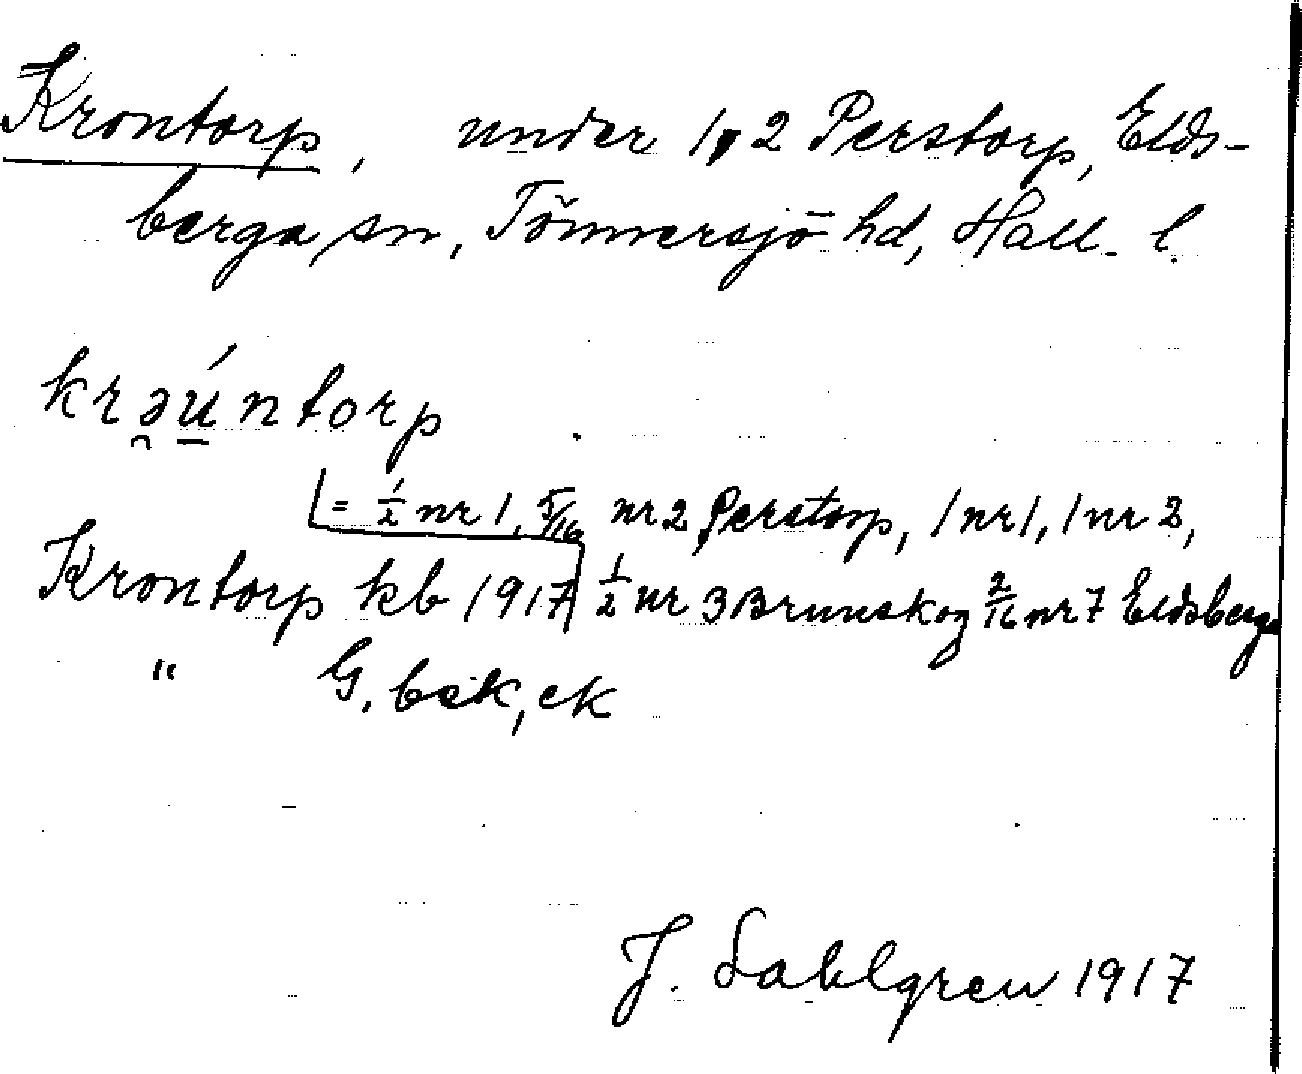 Krontorp, under 1, 2 Perstorp, Elds-
berga sn, Tönnersjö hd, Hall. l.
krə̯ú̱ntorp
= 1/2 nr 1, 5/16 nr 2 Perstorp, 1 nr 1, 1 nr 2,
Krontorp kb 1917 1/2 nr 3 Brunskog 2/16 nr 7 Eldsberga
" G. bek, ek
J. Sahlgren 1917